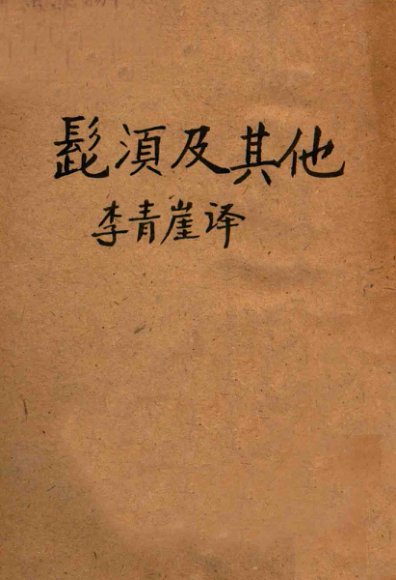 髭須及其他
李青崖译